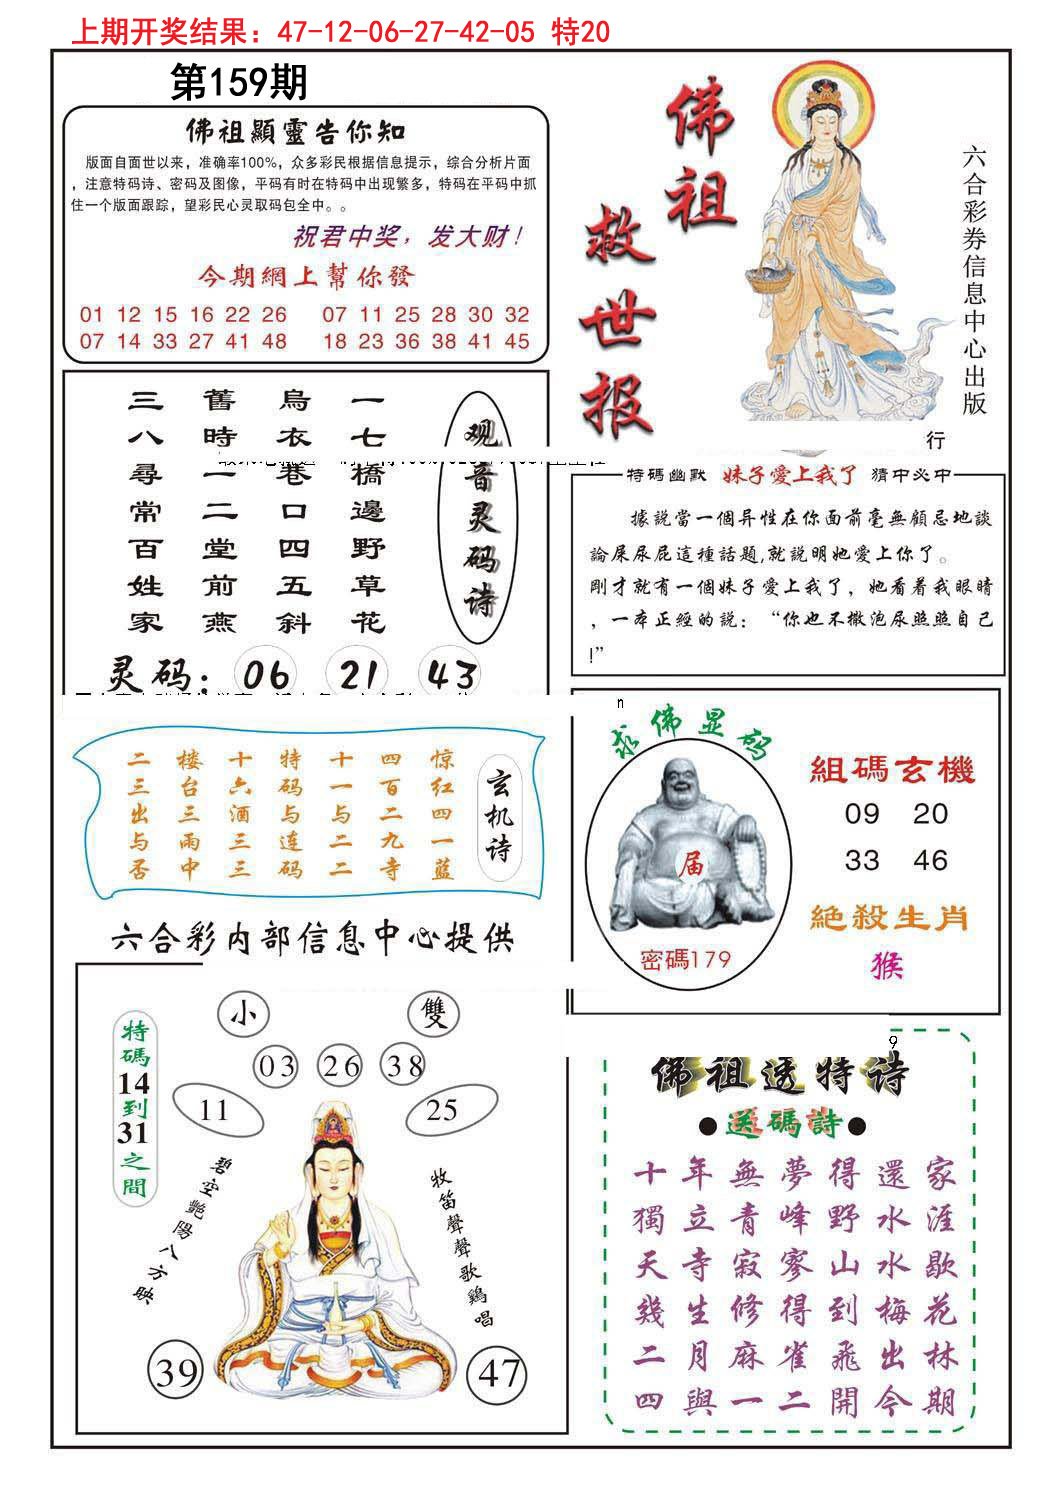 上期开奖结果：47-12-06-27-42-05 特20
第159期
佛祖顯靈告你知
版面自面世以来，准确率100%，众多彩民根据信息提示，综合分析片面
，注意特码诗、密码及图像，平码有时在特码中出现繁多，特码在平码中抓
住一个版面跟踪，望彩民心灵取码包全中。。
祝君中奖，发大财！
今期網上幫你發
01 12 15 16 22 26 07 11 25 28 30 32
07 14 33 27 41 48 18 23 36 38 41 45
佛祖
救世报
六合彩券信息中心出版
行
观音灵码诗
一七橋邊野草花
烏衣巷口四五斜
舊時一二堂前燕
三八尋常百姓家
灵码：06 21 43
特碼幽默 妹子愛上我了 猜中必中
據説當一個异性在你面前毫無顧忌地談
論屎尿屁這種話題,就説明她愛上你了。
剛才就有一個妹子愛上我了，她看着我眼睛
，一本正經的説：“你也不撒泡尿照照自己
!”
n
玄机诗
惊红四一蓝
四百二九寺
十一与二二
特码与连码
十六酒三三
楼台三雨中
二三出与否
求佛显码
届
密碼179
組碼玄機
09 20
33 46
絶殺生肖
猴
六合彩内部信息中心提供
特碼14到31之間
小
雙
03
26
38
11
25
碧空艷陽八方映
牧笛聲聲歌鷄唱
39
47
9
佛祖透特诗
●送碼詩●
十年無夢得還家
獨立青峰野水涯
天寺寂寥山水歇
幾生修得到梅花
二月麻雀飛出林
四與一二開今期